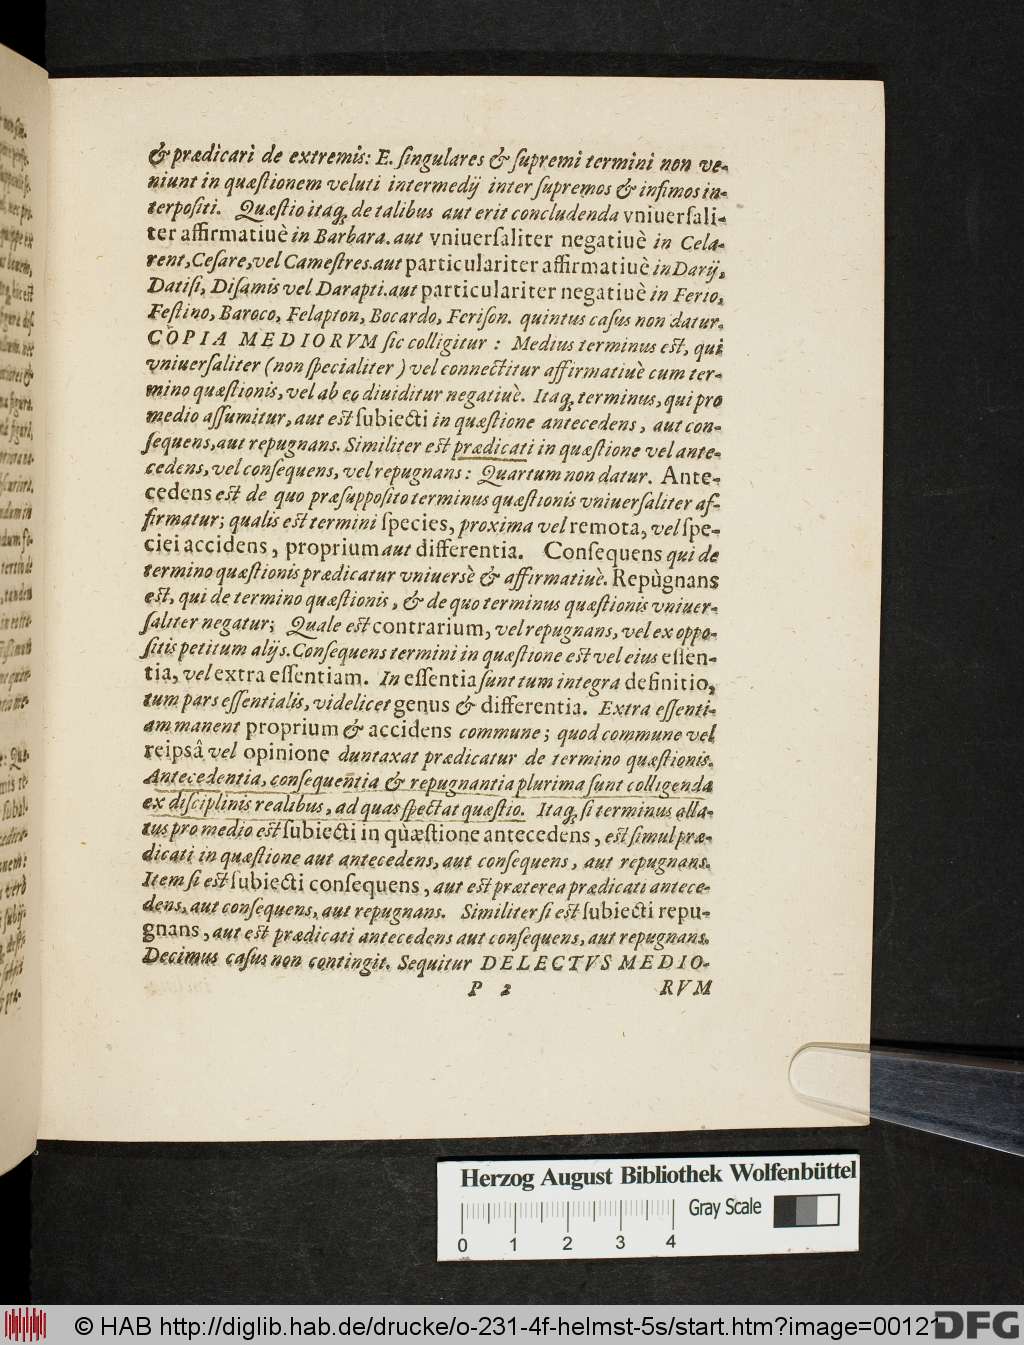 & prædicari de extremis: E. ſingulares & ſupremi termini non ve-
niunt in quæſtionem veluti intermedij inter ſupremos & infimos in-
terpoſiti. Quæſtio itaq; de talibus aut erit concludenda vniuerſali-
ter affirmatiuè in Barbara. aut vniuerſaliter negatiuè in Cela-
rent, Ceſare, vel Cameſtres. aut particulariter affirmatiuè in Darij,
Datiſi, Diſamis vel Darapti. aut particulariter negatiuè in Ferio,
Feſtino, Baroco, Felapton, Bocardo, Feriſon. quintus caſus non datur.
COPIA MEDIORVM ſic colligitur : Medius terminus eſt, qui
vniuerſaliter (non ſpecialiter) vel connectitur affirmatiuè cum ter-
mino quæſtionis, vel ab eo diuiditur negatiuè. Itaq; terminus, qui pro
medio aſſumitur, aut eſt ſubiecti in quæſtione antecedens, aut con-
ſequens, aut repugnans. Similiter eſt prædicati in quæſtione vel ante-
cedens, vel conſequens, vel repugnans: Quartum non datur. Ante-
cedens eſt de quo præſuppoſito terminus quæſtionis vniuerſaliter af-
firmatur; qualis eſt termini ſpecies, proxima vel remota, vel ſpe-
ciei accidens, proprium aut differentia. Conſequens qui de
termino quæſtionis prædicatur vniuersè & affirmatiuè. Repùgnans
eſt, qui de termino quæſtionis, & de quo terminus quæſtionis vniuer-
ſaliter negatur; Quale eſt contrarium, vel repugnans, vel ex oppo-
ſitis petitum alijs. Conſequens termini in quæſtione eſt vel eius eſſen-
tia, vel extra eſſentiam. In eſſentia ſunt tum integra definitio,
tum pars eſſentialis, videlicet genus & differentia. Extra eſſenti-
am manent proprium & accidens commune; quod commune vel
reipsâ vel opinione duntaxat prædicatur de termino quæſtionis.
Antecedentia, conſequentia & repugnantia plurima ſunt colligenda
ex diſciplinis realibus, ad quas ſpectat quæſtio. Itaq; ſi terminus alla-
tus pro medio eſt ſubiecti in quæſtione antecedens, eſt ſimul præ-
dicati in quæſtione aut antecedens, aut conſequens, aut repugnans.
Item ſi eſt ſubiecti conſequens, aut eſt præterea prædicati antece-
dens, aut conſequens, aut repugnans. Similiter ſi eſt ſubiecti repu-
gnans, aut eſt prædicati antecedens aut conſequens, aut repugnans.
Decimus caſus non contingit. Sequitur DELECTVS MEDIO-
P 2 RVM
Herzog August Bibliothek Wolfenbüttel
Gray Scale
0 1 2 3 4
© HAB http://diglib.hab.de/drucke/o-231-4f-helmst-5s/start.htm?image=00121
DFG